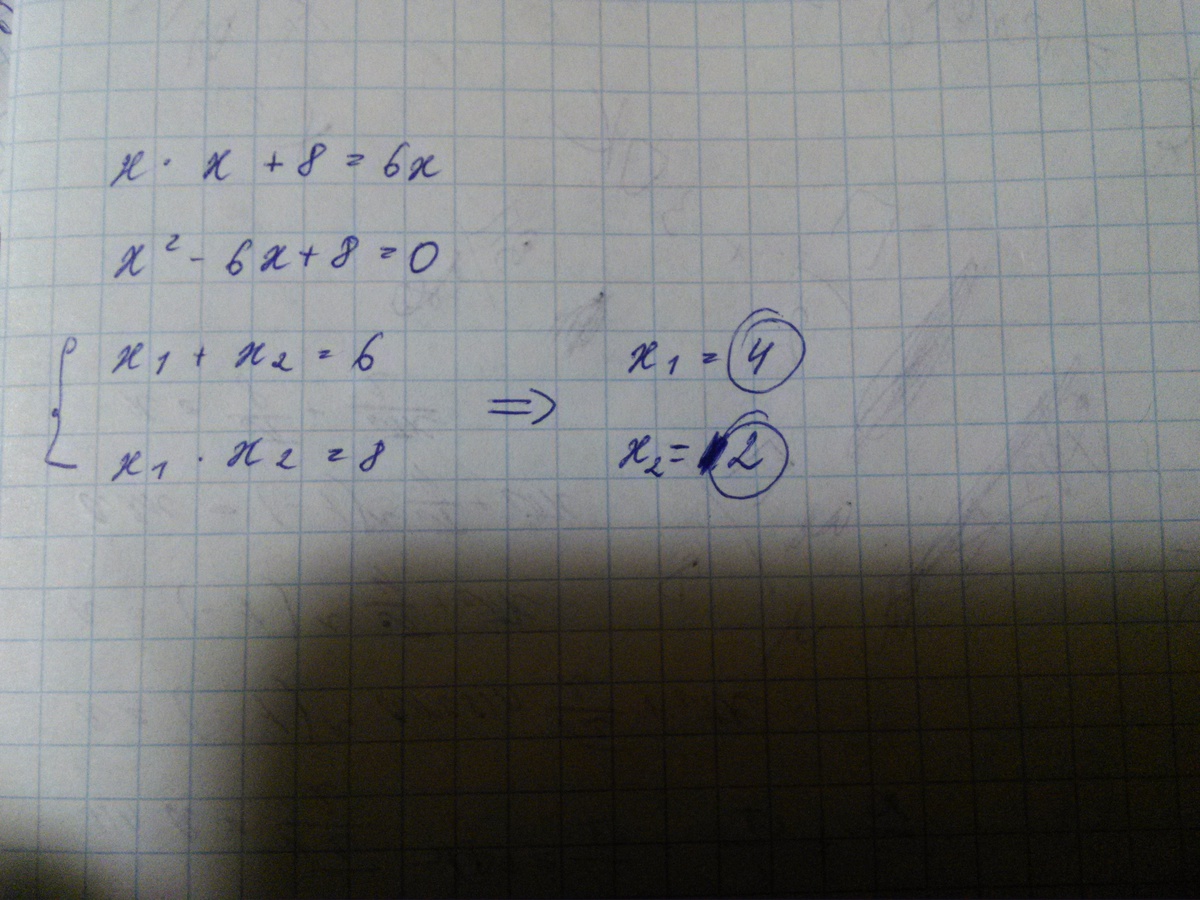 x · x + 8 = 6x
x² - 6x + 8 = 0
x₁ + x₂ = 6
x₁ · x₂ = 8
⇒
x₁ = 4
x₂ = 2